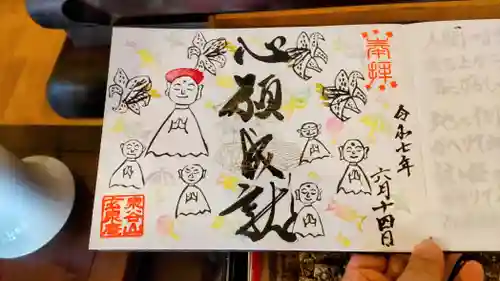 奉拝
心願成就
令和七年
六月十四日